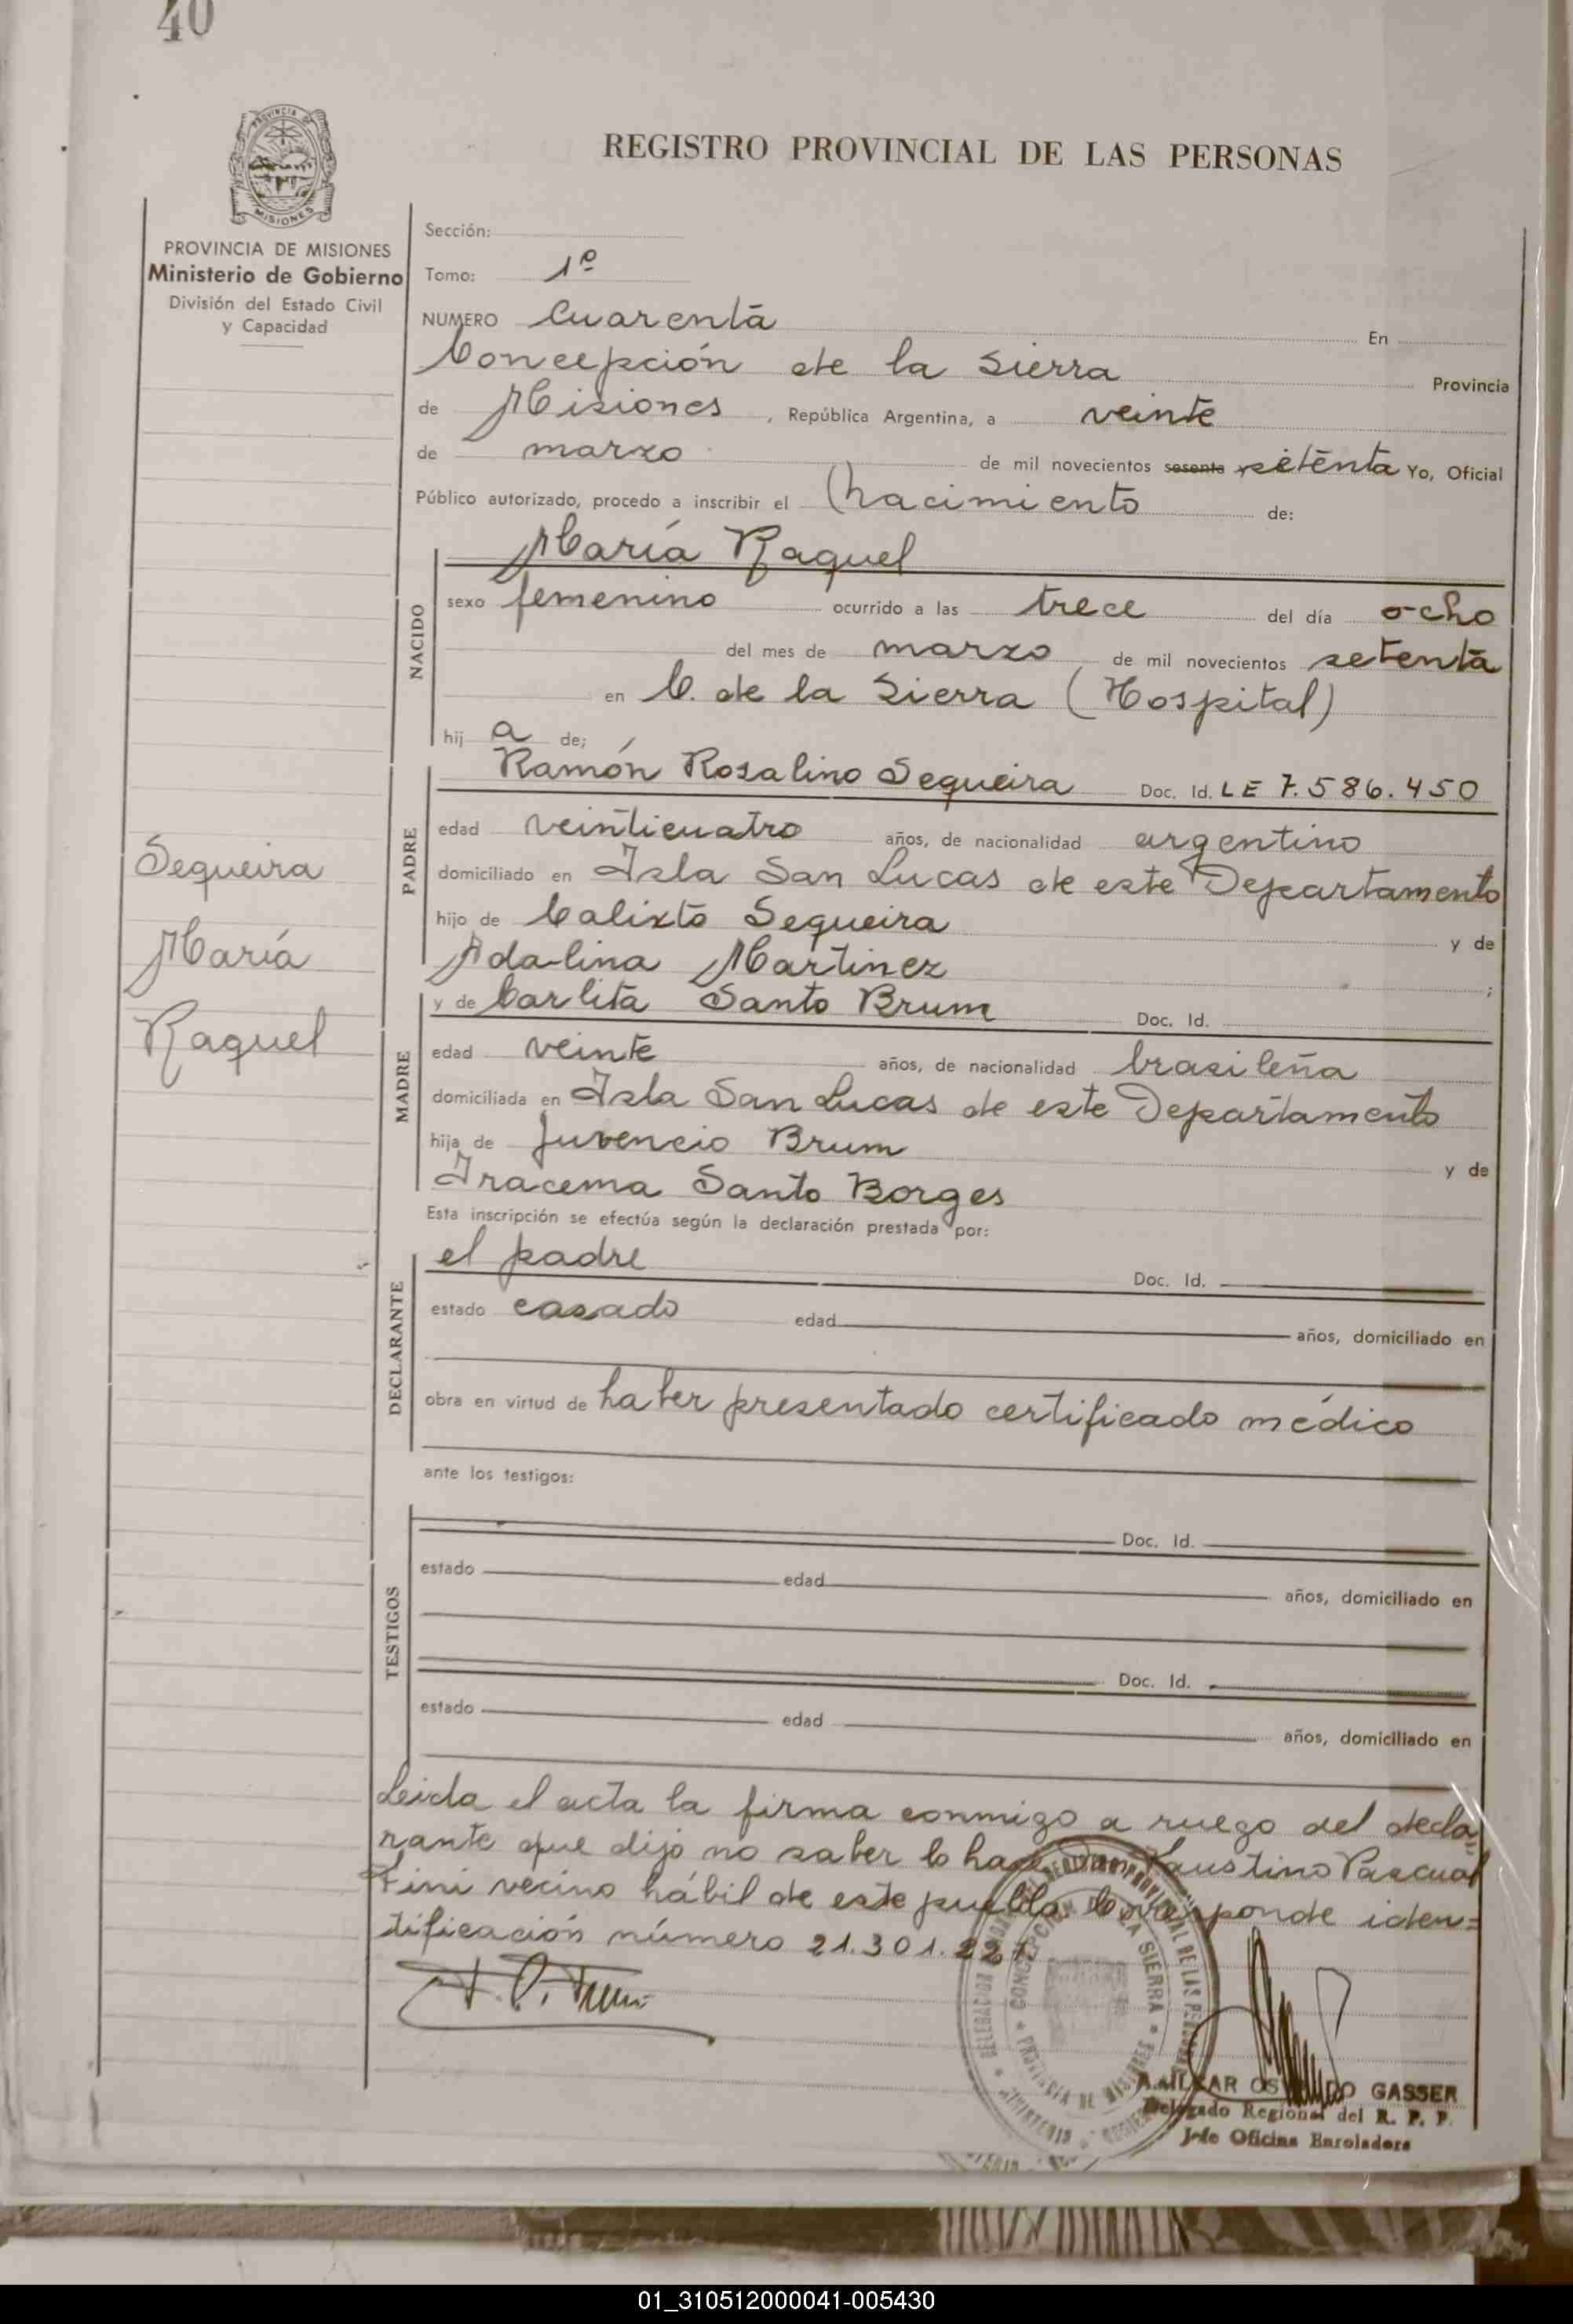 40
PROVINCIA DE
MISIONES
REGISTRO PROVINCIAL DE LAS PERSONAS
PROVINCIA DE MISIONES
Ministerio de Gobierno
División del Estado Civil
y Capacidad
Sección:
Tomo: 1º
NUMERO Cuarenta En
Concepción de la Sierra Provincia
de Misiones, República Argentina, a veinte
de marzo de mil novecientos sesenta setenta Yo, Oficial
Público autorizado, procedo a inscribir el nacimiento de:
María Raquel
NACIDO
sexo femenino ocurrido a las trece del día ocho
del mes de marzo de mil novecientos setenta
en C. de la Sierra (Hospital)
hij a de;
Ramón Rosalino Sequeira Doc. Id. LE 7.586.450
PADRE
edad veinticuatro años, de nacionalidad argentino
domiciliado en Isla San Lucas de este Departamento
hijo de Calixto Sequeira y de
Adalina Martinez ;
Sequeira
María
Raquel
y de Carlita Santo Brum Doc. Id.
MADRE
edad veinte años, de nacionalidad brasileña
domiciliada en Isla San Lucas de este Departamento
hija de Juvencio Brum y de
Iracema Santo Borges
Esta inscripción se efectúa según la declaración prestada por:
el padre Doc. Id.
DECLARANTE
estado casado edad años, domiciliado en
obra en virtud de haber presentado certificado médico
ante los testigos:
TESTIGOS
Doc. Id.
estado edad años, domiciliado en
Doc. Id.
estado edad años, domiciliado en
Leida el acta la firma conmigo a ruego del decla=
rante que dijo no saber lo hace Don Faustino Pascual
Fini vecino hábil de este pueblo. Corresponde iden=
tificación número 21.301.227
CONCEPCION DE LA SIERRA
PROVINCIA DE MISIONES
AMILCAR OSVALDO GASSER
Delegado Regional del R. P. P.
Jefe Oficina Enroladora
01_310512000041-005430